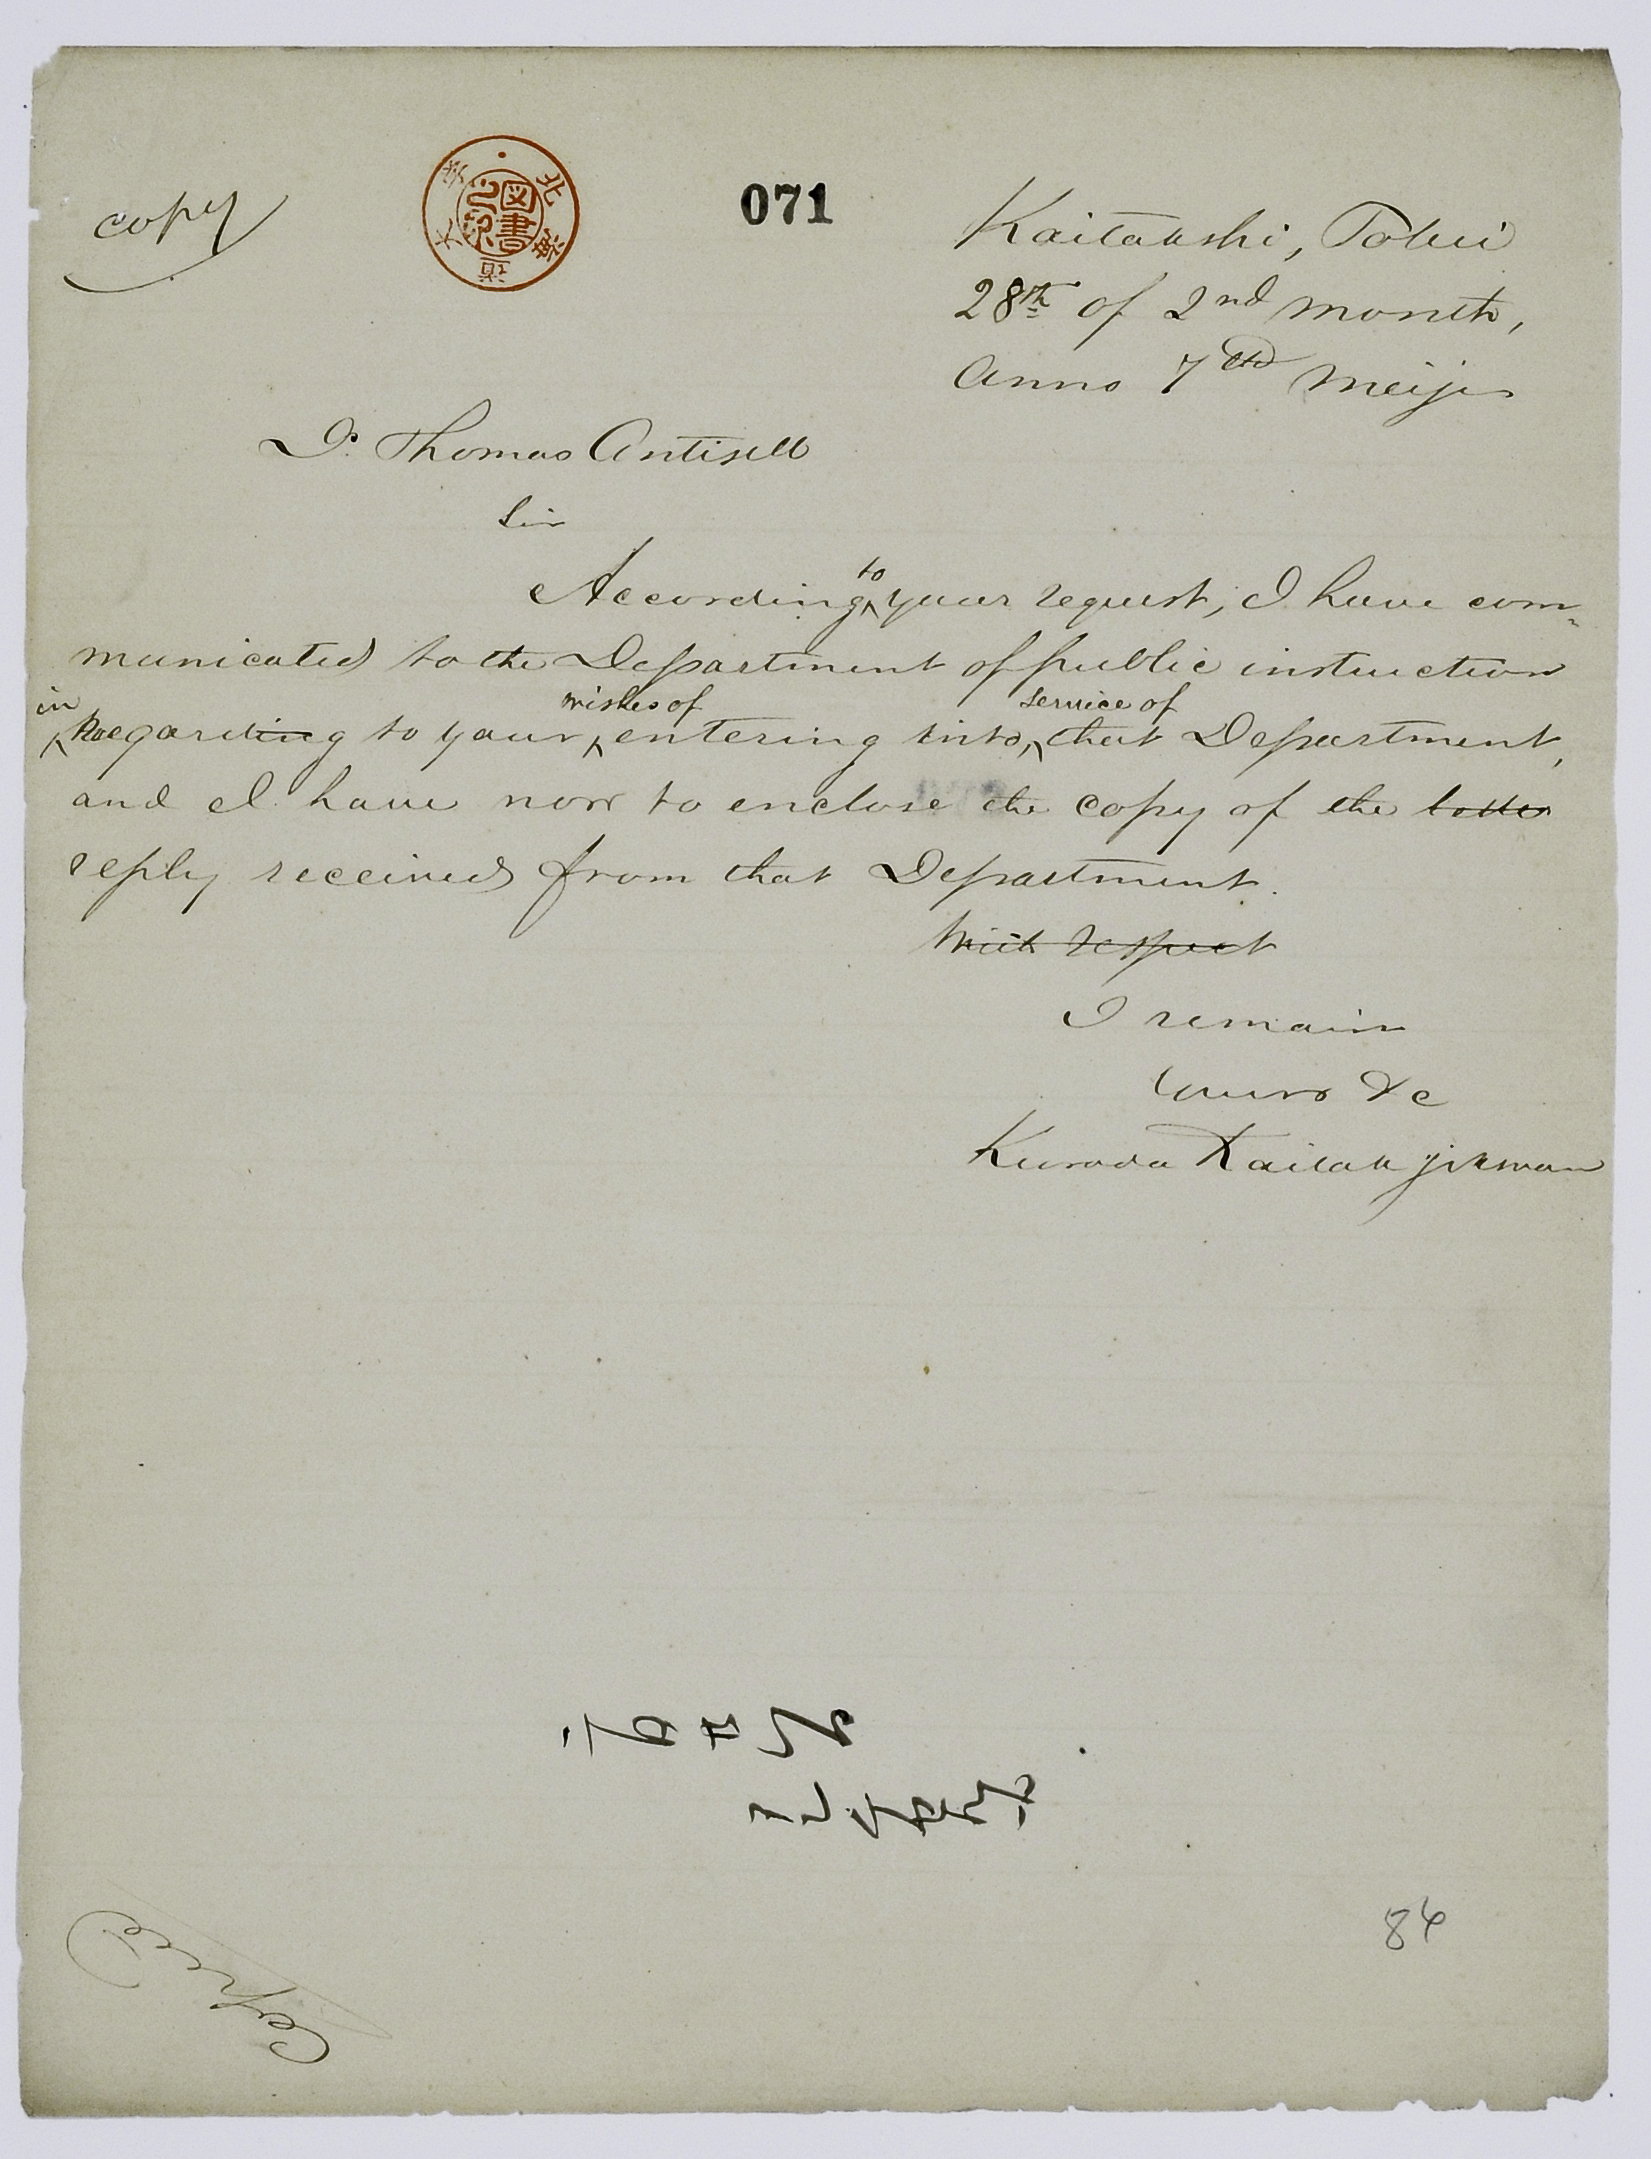 copy
北海道大学
図書之印
071
Kaitakshi, Tokei
28th of 2nd month,
Anno 7th Meiji
Dr. Thomas Antisell
Sir
According to your request, I have com-
municated to the Department of public instruction
in regarding to your wishes of entering into, service of that Department,
and I have now to enclose the copy of the letter
reply received from that Department.
With respect
I remain
Yours &c
Kuroda Kaitak jikwan
86
Copied